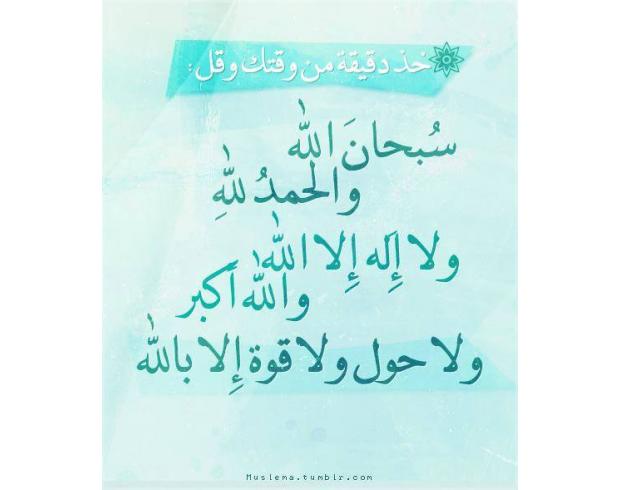 خذ دقيقة من وقتك وقل :
سُبحانَ الله
والحمدُ للهِ
ولا إِله إِلا الله
والله أكبر
ولا حول ولا قوة إِلا بالله
Muslema.tumblr.com